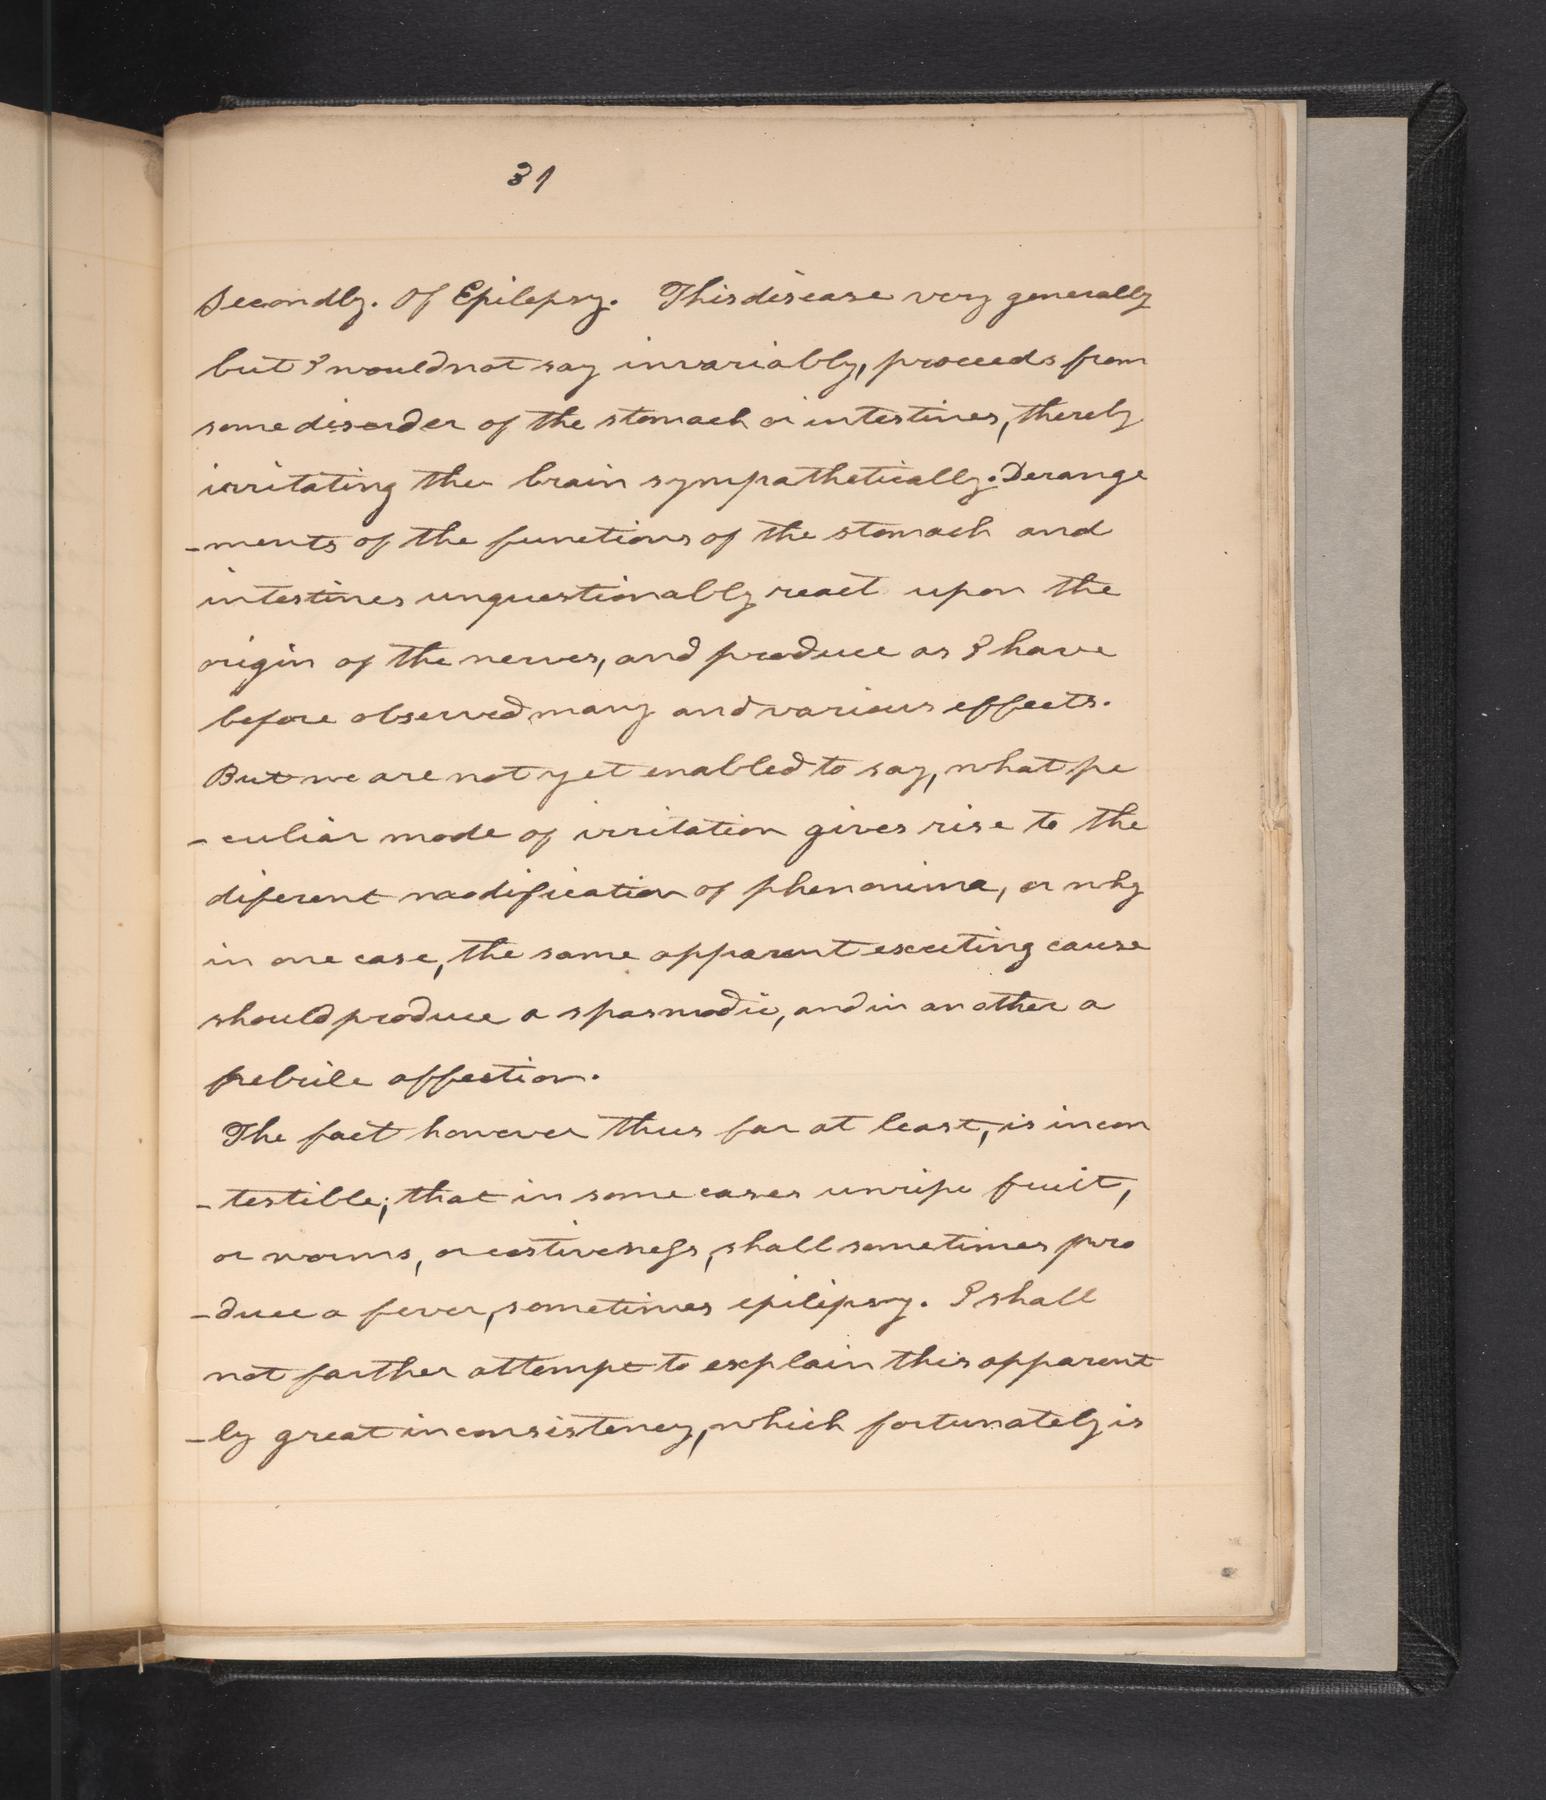 31
Secondly. Of Epilepsy. This disease very generally
but I would not say invariably, proceeds from
some disorder of the stomach or intestines, thereby
irritating the brain sympathetically. Derange
-ments of the functions of the stomach and
intestines unquestionably react upon the
origin of the nerves, and produce as I have
before observed many and various effects.
But we are not yet enabled to say, what pe
-culiar mode of irritation gives rise to the
diferent modification of phenonima, or why
in one case, the same apparent exciting cause
should produce a spasmodic, and in another a
febrile affection.
The fact however thus far at least, is incon
-testible; that in some cases unripe fruit,
or worms, or costiveness, shall sometimes pro
-duce a fever, sometimes epilipsy. I shall
not farther attempt to explain this apparent
-ly great inconsistency, which fortunately is